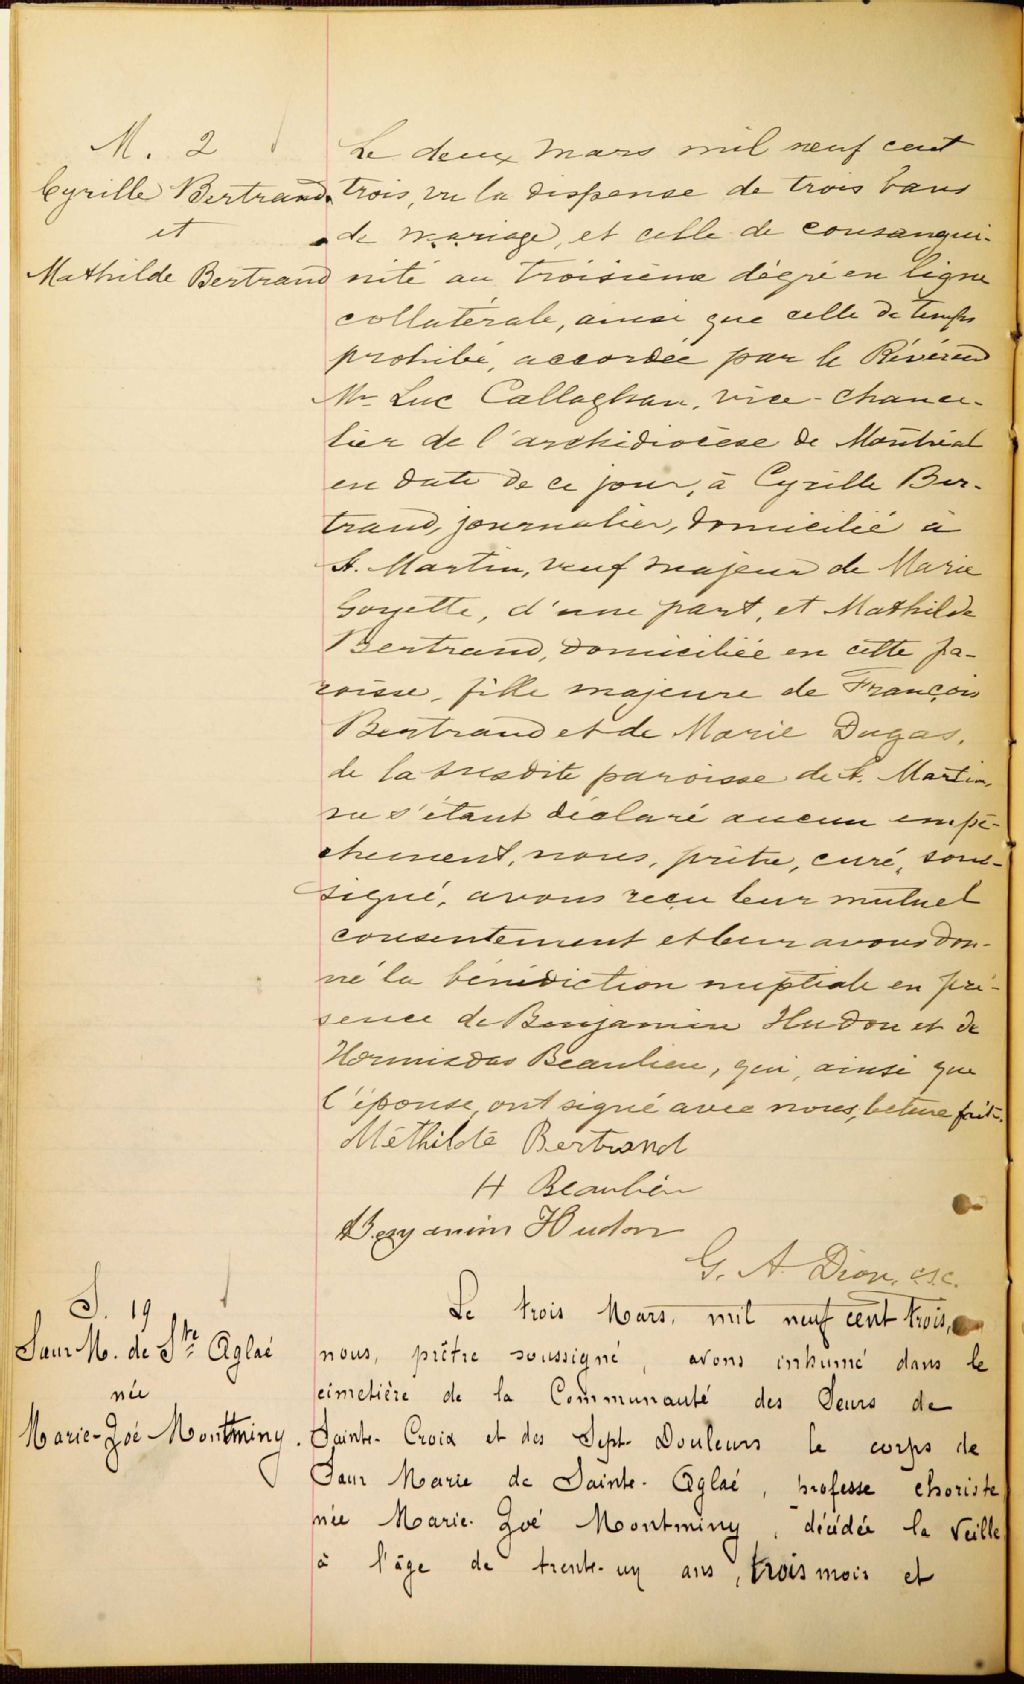 M. 2
Cyrille Bertrand
et
Mathilde Bertrand
Le deux mars mil neuf cent
trois, vu la dispense de trois bans
de mariage, et celle de consangui-
nité au troisième dégré en ligne
collatérale, ainsi que celle de temps
prohibé, accordée par le Révérend
Mr Luc Callaghan, vice-chance-
lier de l'archidiocèse de Montréal
en date de ce jour, à Cyrille Ber-
trand, journalier, domicilié à
St. Martin, veuf majeur de Marie
Goyette, d'une part, et Mathilde
Bertrand, domiciliée en cette pa-
roisse, fille majeure de François
Bertrand et de Marie Dagas,
de la susdite paroisse de St. Martin,
ne s'étant déclaré aucun empê-
chement, nous, prêtre, curé, sous-
signé, avons reçu leur mutuel
consentement et leur avons don-
né la bénédiction nuptiale en pré-
sence de Benjamin Hudon et de
Hormisdas Beaulieu, qui, ainsi que
l'épouse, ont signé avec nous, lecture faite.
Méthildé Bertrand
H Beaulieu
Benjamin Hudon
G. A. Dion, c.s.c.
S. 19
Sœur M. de Ste Aglaé
née
Marie-Zoé Montminy.
Le trois Mars, mil neuf cent trois,
nous, prêtre soussigné, avons inhumé dans le
cimetière de la Communauté des Sœurs de
Sainte-Croix et des Sept-Douleurs le corps de
Sœur Marie de Sainte-Aglaé, professe choriste
née Marie-Zoé Montminy, décédée la veille
à l'âge de trente-un ans, trois mois et